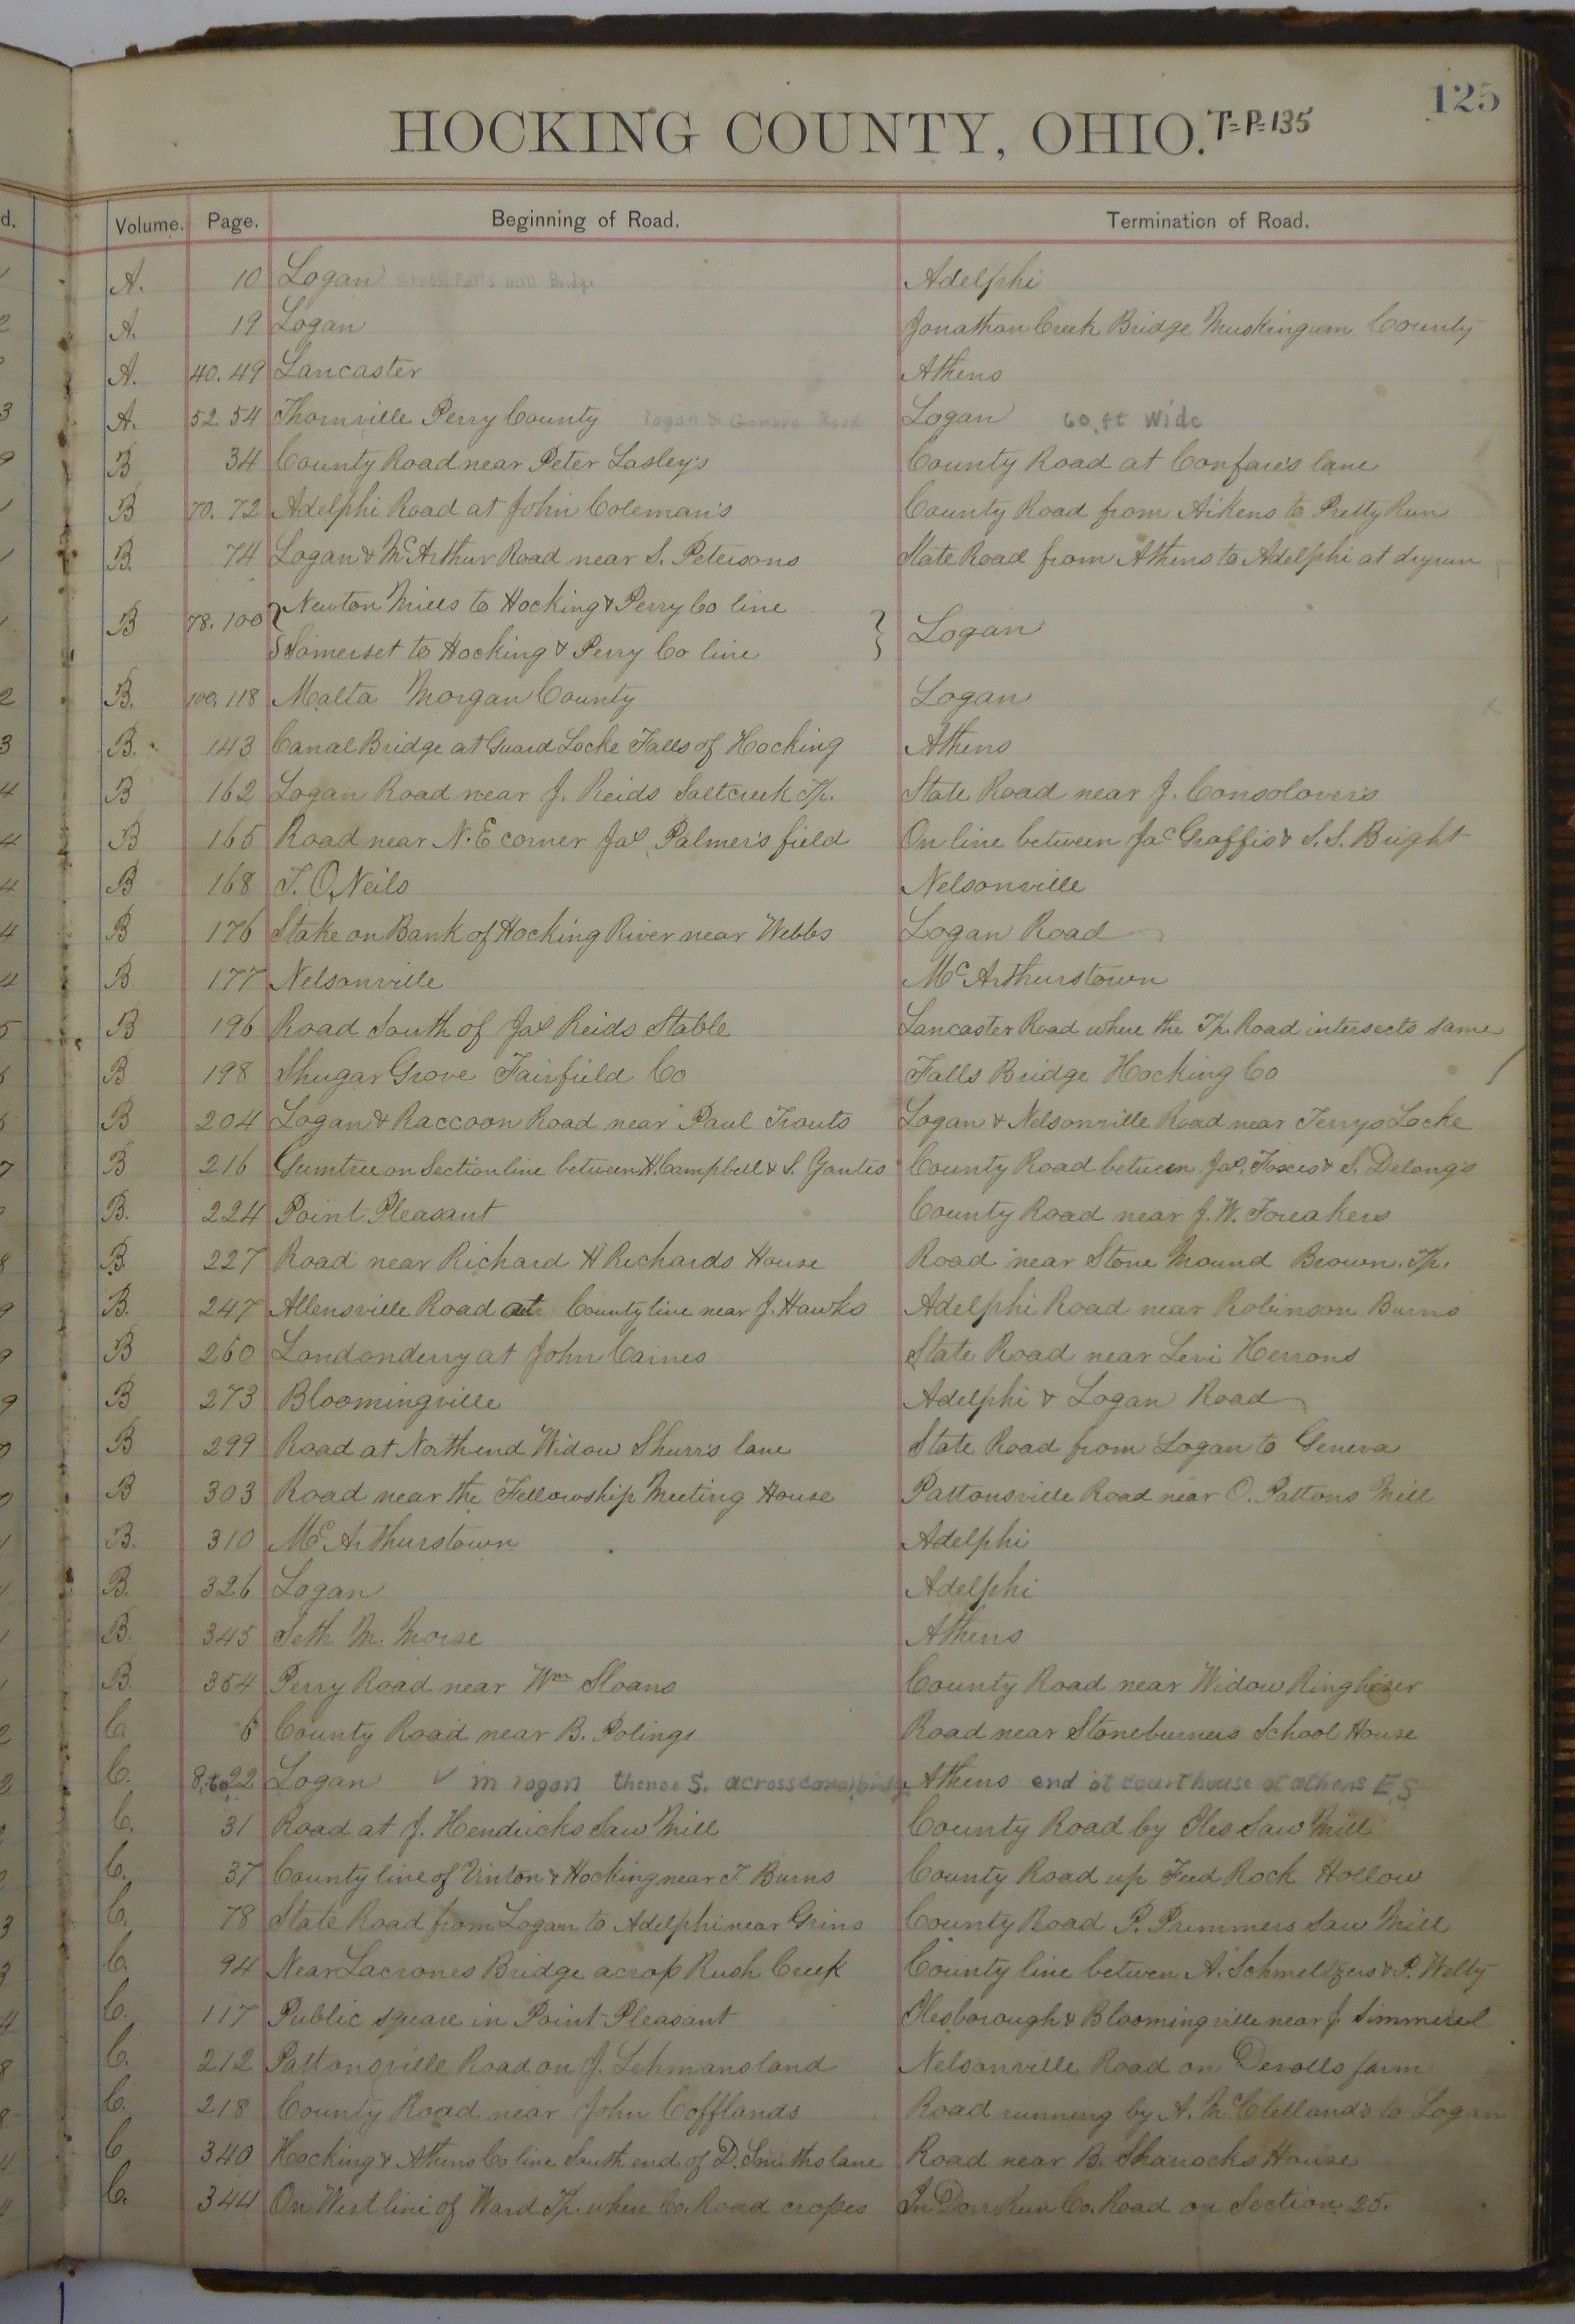 125
HOCKING COUNTY, OHIO. T=P=135
d. Volume. Page. Beginning of Road. Termination of Road.
A. 10 Logan Cross Falls mill Bridge Adelphi
A. 19 Logan Jonathan Creek Bridge Muskingum County
A. 40. 49 Lancaster Athens
A. 52. 54 Thornville Perry County Logan & Geneva Road Logan 60 ft wide
B 34 County Road near Peter Lasley's County Road at Confare's lane
B 70. 72 Adelphi Road at John Coleman's County Road from Aikens to Pretty Run
B. 74 Logan & McArthur Road near S. Petersons State Road from Athens to Adelphi at dryrun
B 78. 100 { Newton Mills to Hocking & Perry Co line } Logan
{ Somerset to Hocking & Perry Co line
B. 100. 118 Malta Morgan County Logan
B. 143 Canal Bridge at Guard Locke Falls of Hocking Athens
B 162 Logan Road near J. Reids Saltcreek Tp. State Road near J. Consolover's
B 165 Road near N.E corner Jas Palmer's field On line between Jac Graffis & S.S. Bright
B 168 T. O,Neils Nelsonville
B 176 Stake on Bank of Hocking River near Webbs Logan Road
B. 177 Nelsonville McArthurstown
B 196 Road South of Jas Reids Stable Lancaster Road where the Tp. Road intersects same
B 198 Shugar Grove Fairfield Co Falls Bridge Hocking Co
B 204 Logan & Raccoon Road near Paul Trouts Logan & Nelsonville Road near Terrys Locke
B 216 Gumtree on Section line between H. Campbell & S. Gantes County Road between Jas. Foxes & S. Delong's
B. 224 Point Pleasant County Road near J.W. Foreakers
B. 227 Road near Richard H Richards House Road near Stone Mound Brown. Tp.
B. 247 Allensville Road at County line near J. Hawks Adelphi Road near Robinson Burns
B 260 Londonderry at John Carnes State Road near Levi Herrons
B 273 Bloomingville Adelphi & Logan Road
B 299 Road at North end Widow Shurr's lane State Road from Logan to Geneva
B 303 Road near the Fellowship Meeting House Pattonsville Road near O. Pattons Mill
B. 310 McArthurstown Adelphi
B. 326 Logan Adelphi
B. 345 Seth M. Morse Athens
B. 354 Perry Road near Wm Sloans County Road near Widow Ringhiser
C. 6 County Road near B. Polings Road near Stoneburners School House
C. 8, to 22 Logan ✓ in logan thence S. across canal bridge Athens end at courthouse at athens E,S
C. 31 Road at J. Hendricks Saw Mill County Road by Iles Saw Mill
C. 37 County line of Vinton & Hocking near T Burns County Road up Feed Rock Hollow
C. 78 State Road from Logan to Adelphi near Grins County Road P. Primmers Saw Mill
C. 94 Near Lacrones Bridge across Rush Creek County line betwen A. Schmeltzers & P. Welty
C. 117 Public square in Point Pleasant Ilesborough & Bloomingville near J. Simmerel
C. 212 Pattonsville Road on J. Lehmans land Nelsonville Road on Devolls farm
C. 218 County Road near John Cofflands Road running by A. McClelland's to Logan
C 340 Hocking & Athens Co line South end of D. Smiths lane Road near B. Sharrocks House
C. 344 On West line of Ward Tp. where Co. Road crosses In Dorr Run Co. Road on Section 25.